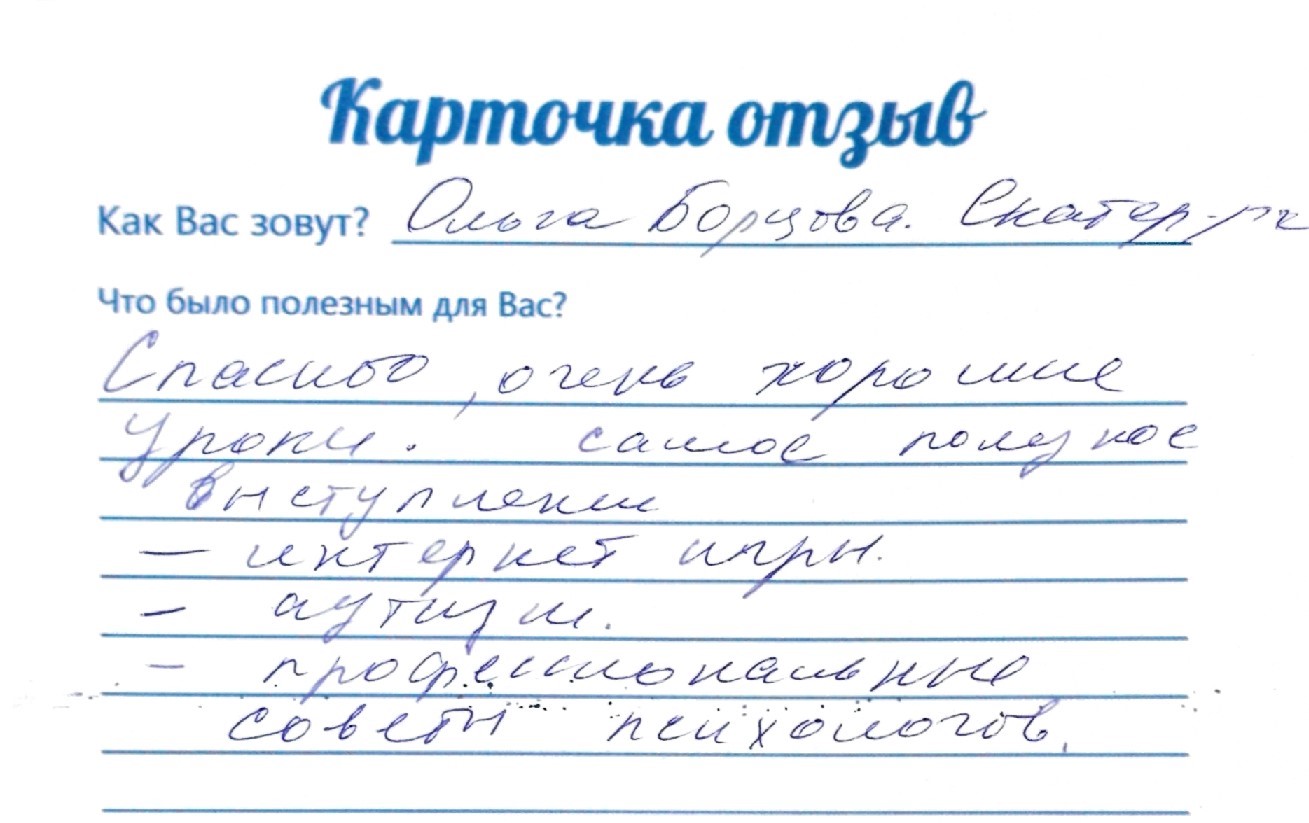 Карточка отзыв
Как Вас зовут? Ольга Борцова.
Что было полезным для Вас?
Спасибо, очень хорошие
уроки. самое полезное
выступление
— интернет игры.
- аутизм.
- профессиональные
советы психологов.